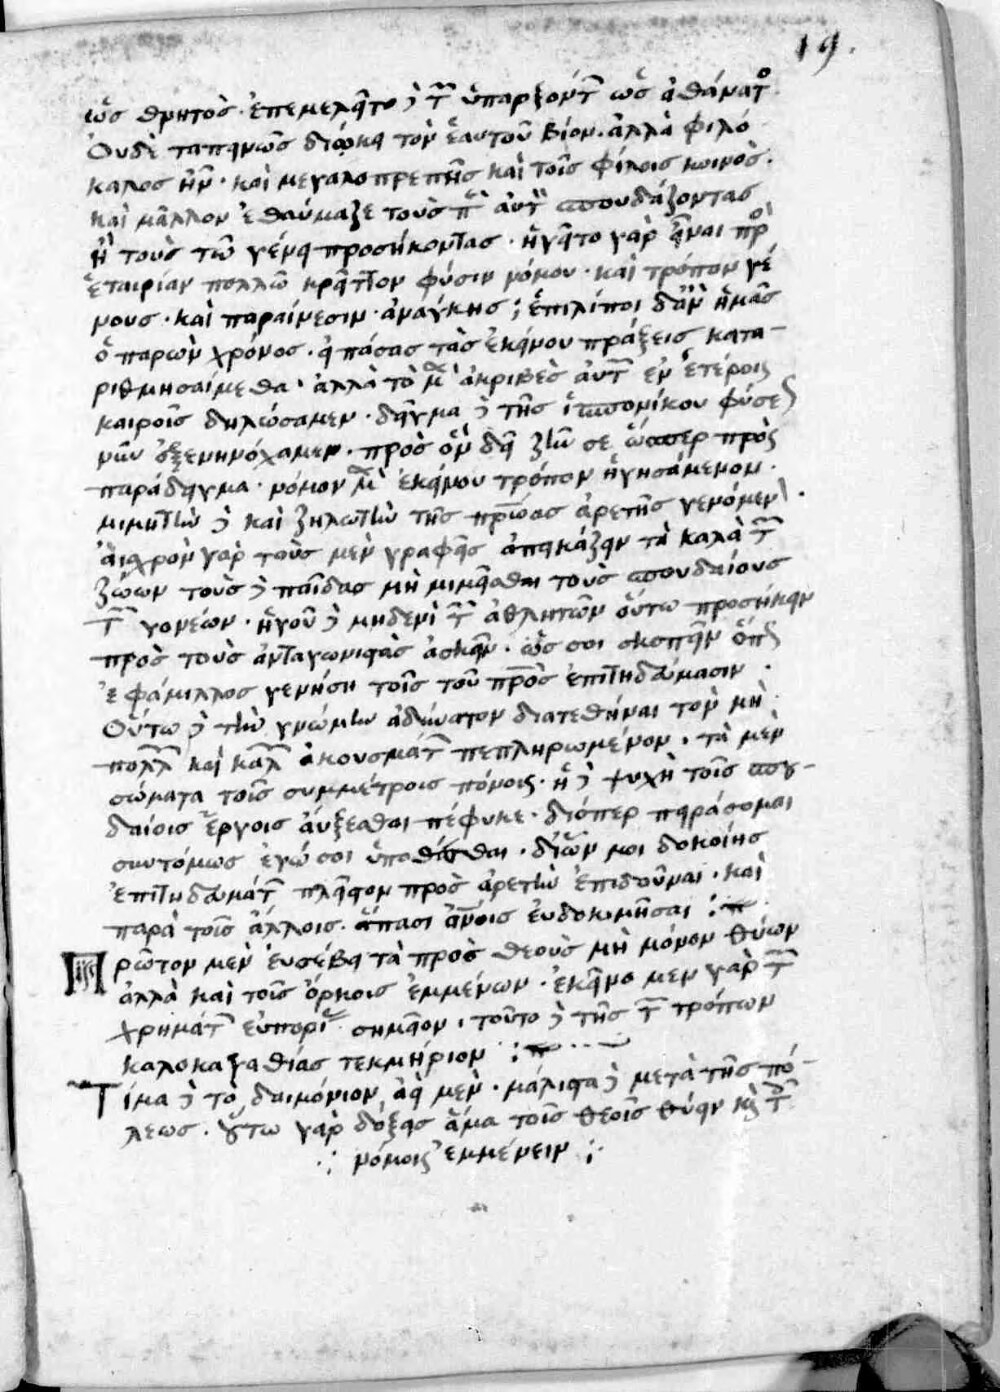 19.
ὡς θνητὸς· ἐπεμελεῖτο δὲ τῶν ὑπαρχόντων ὡς ἀθάνατος·
Οὐδὲ ταπεινῶς διῴκει τὸν ἑαυτοῦ βίον· ἀλλὰ φιλό
καλος ἦν· καὶ μεγαλοπρεπὴς καὶ τοῖς φίλοις κοινὸς·
καὶ μᾶλλον ἐθαύμαζε τοὺς περὶ αὐτὸν σπουδάζοντας
ἢ τοὺς τῶ γένει προσήκοντας· ἡγεῖτο γὰρ εἶναι πρὸς
ἑταιρίαν πολλῶ κρεῖττον φύσιν νόμου· καὶ τρόπον γέ
νους· καὶ παραίνεσιν ἀνάγκης: ἐπιλίποι δ' ἂν ἡμᾶς
ὁ παρὼν χρόνος· εἰ πάσας τὰς ἐκείνου πράξεις κατα-
ριθμησαίμεθα· ἀλλὰ τὸ μὲν ἀκριβὲς αὐτῶν ἐν ἑτέροις
καιροῖς δηλώσαμεν· δεῖγμα δὲ τῆς ἱππονίκου φύσεως
νῦν ἐξενηνόχαμεν· πρὸς ὃν δεῖ ζῆν σε ὥσπερ πρὸς
παράδειγμα· νόμον μὲν ἐκείνου τρόπον ἡγησάμενον·
μιμητὴν δὲ καὶ ζηλωτὴν τῆς πατρώας ἀρετῆς γενόμενον·
Αἰσχρὸν γὰρ τοὺς μὲν γραφεῖς ἀπεικάζειν τὰ καλὰ τῶν
ζώων τοὺς δὲ παῖδας μὴ μιμεῖσθαι τοὺς σπουδαίους
τῶν γονέων· ἡγοῦ δὲ μηδενὶ τῶν ἀθλητῶν οὕτω προσήκειν
πρὸς τοὺς ἀνταγωνιστὰς ἀσκεῖν· ὡς σοι σκοπεῖν ὅπως
ἐφάμιλλος γενήσῃ τοῖς τοῦ πατρὸς ἐπιτηδεύμασιν·
Οὕτω δὲ τὴν γνώμην ἀδύνατον διατεθῆναι τὸν μὴ
πολλῶν καὶ καλῶν ἀκουσμάτων πεπληρωμένον· τὰ μὲν
σώματα τοῖς συμμέτροις πόνοις· ἡ δὲ ψυχὴ τοῖς σπου-
δαίοις ἔργοις αὔξεσθαι πέφυκε· διόπερ πειράσομαι
συντόμως ἐγώ σοι ὑποθέσθαι· δι' ὧν μοι δοκοίης
ἐπιτηδευμάτων πλεῖστον πρὸς ἀρετὴν ἐπιδοῦναι· καὶ
παρὰ τοῖς ἄλλοις· ἅπασι ἀνοις εὐδοκιμῆσαι :~
Πρῶτον μὲν εὐσέβει τὰ πρὸς θεοὺς μὴ μόνον θύων
ἀλλὰ καὶ τοῖς ὅρκοις ἐμμένων· ἐκεῖνο μὲν γὰρ τῶν
χρημάτων εὐπορίας σημεῖον· τοῦτο δὲ τῆς τῶν τρόπων
καλοκαγαθίας τεκμήριον :~
Τίμα δὲ τὸ δαιμόνιον ἀεὶ μὲν· μάλιστα δὲ μετὰ τῆς πό-
λεως· οὕτω γὰρ δόξεις ἅμα τοῖς θεοῖς θύειν καὶ τοῖς
·: νόμοις ἐμμένειν :·